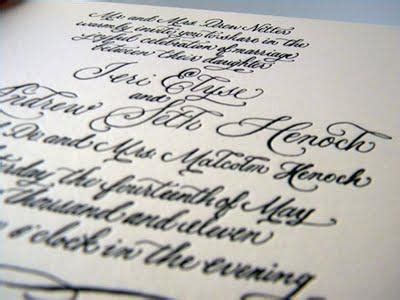 Mr. and Mrs. Drew Nolles
warmly invite you to share in the
joyful celebration of marriage
between their daughter
Jeri Elyse
and
Andrew Seth Henoch
Dr. and Mrs. Malcolm Henoch
the fourteenth of May
thousand and eleven
o'clock in the evening